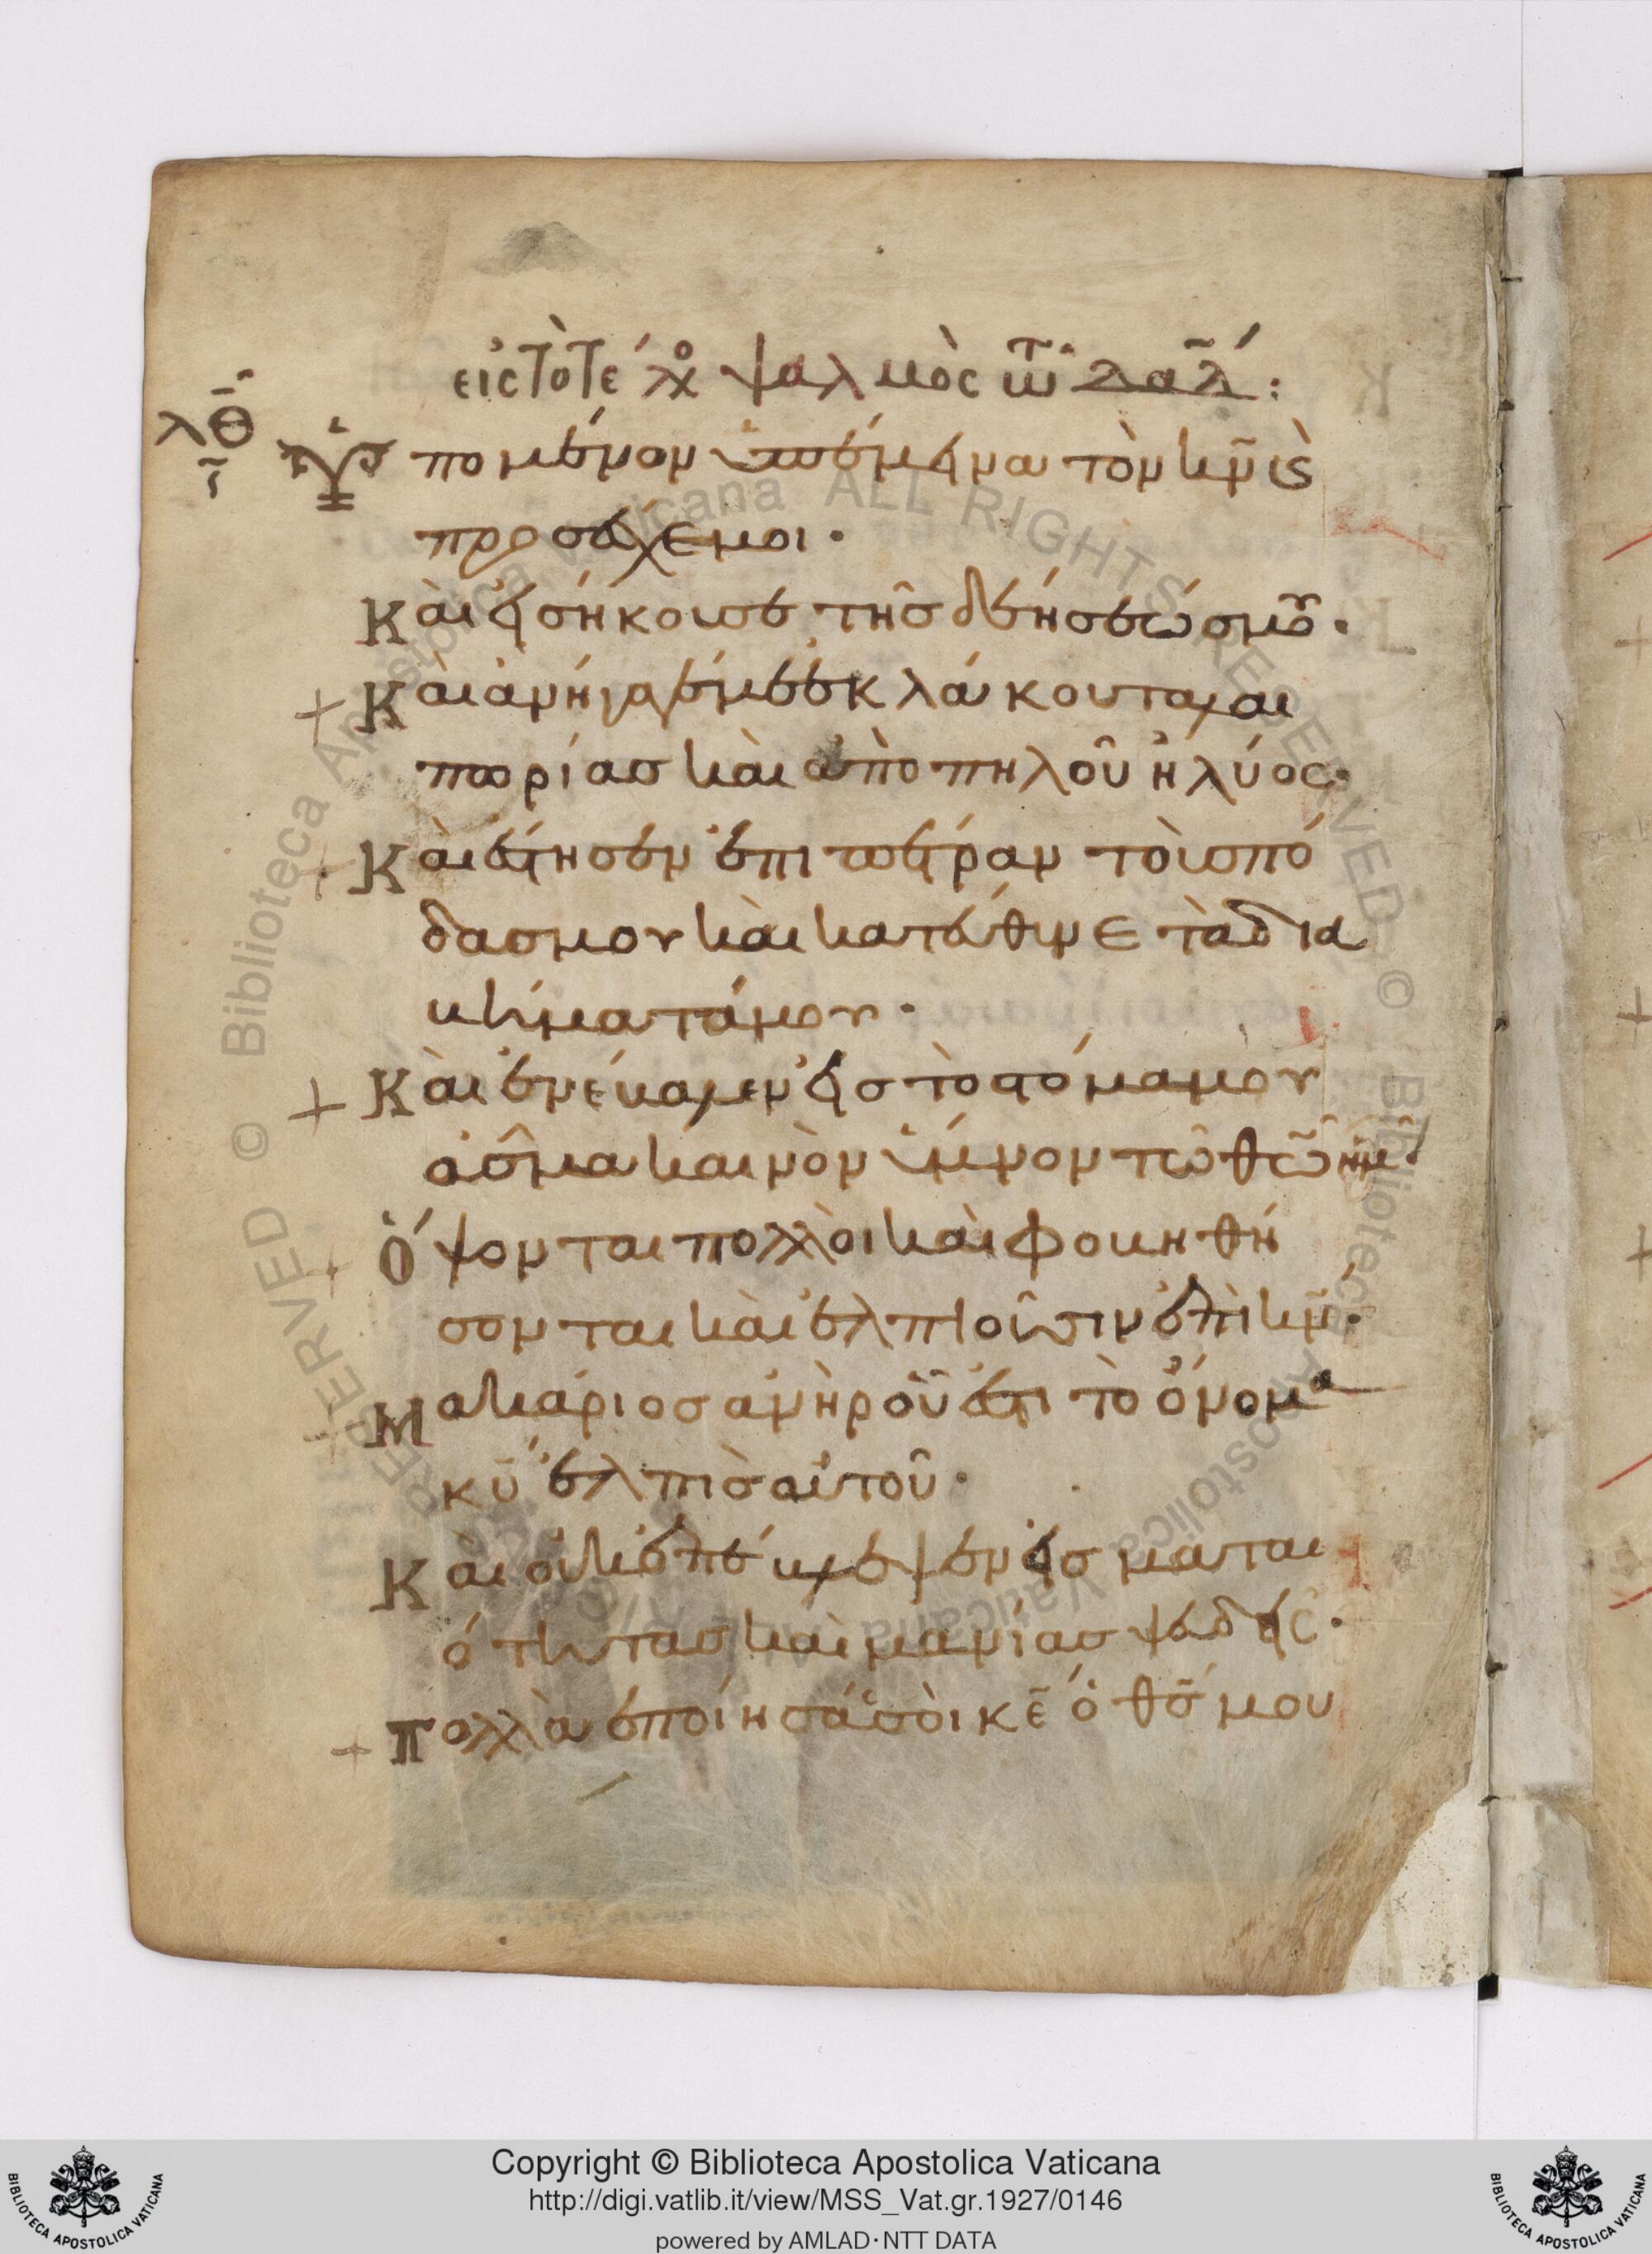 εἰς τὸ τέλο ψαλμὸς τῶ δαδ:
λθ
Ὑπομένων ὑπέμεινα τὸν κν̄ ς
προσέσχε μοι·
Καὶ εἰσήκουσε τῆς δεήσεώς μου·
Καὶ ἀνήγαγέν με ἐκ λάκκου ταλαι
πωρίας καὶ ἀπὸ πηλοῦ ἰλύος·
Καὶ ἔστησεν ἐπι πέτραν τοὺς πό
δας μου καὶ κατεύθυνε τὰ δια
βήματά μου·
Καὶ ἐνέβαλεν εἰς τὸ στόμα μου
ἆσμα καινὸν ὕμνον τῶ θῶ ἡμ·
Ὄψονται πολλοὶ καὶ φοβηθή
σονται καὶ ἐλπιοῦσιν ἐπὶ κν̄·
Μακάριος ἀνὴρ οὗ ἐστι τὸ ὄνομα
κῡ ἐλπὶς αὐτοῦ·
Καὶ οὐκ ἐπέβλεψεν εἰς μαται
ότητας καὶ μανίας ψευδεῖς·
Πολλὰ ἐποίησας σὺ κε̄ ὁ θς̄ μου
Copyright © Biblioteca Apostolica Vaticana
http://digi.vatlib.it/view/MSS_Vat.gr.1927/0146
powered by AMLAD·NTT DATA
BIBLIOTECA APOSTOLICA VATICANA
BIBLIOTECA APOSTOLICA VATICANA